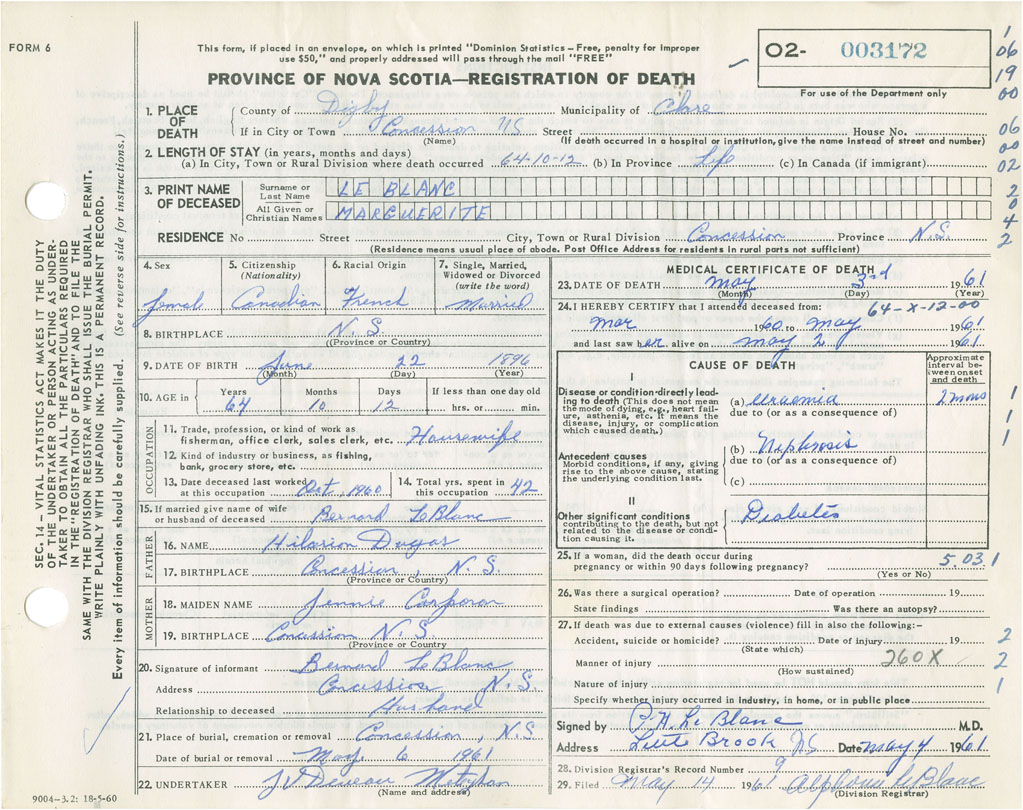 FORM 6
This form, if placed in an envelope, on which is printed "Dominion Statistics – Free, penalty for improper
use $50," and properly addressed will pass through the mail "FREE"
PROVINCE OF NOVA SCOTIA—REGISTRATION OF DEATH
O2- 003172
For use of the Department only
1 06 19 00 06 00 02 2 0 4 2
SEC. 14 – VITAL STATISTICS ACT MAKES IT THE DUTY
OF THE UNDERTAKER OR PERSON ACTING AS UNDER-
TAKER TO OBTAIN ALL THE PARTICULARS REQUIRED
IN THE "REGISTRATION OF DEATH" AND TO FILE THE
SAME WITH THE DIVISION REGISTRAR WHO SHALL ISSUE THE BURIAL PERMIT.
WRITE PLAINLY WITH UNFADING INK. THIS IS A PERMANENT RECORD.
Every item of information should be carefully supplied. (See reverse side for instructions.)
1. PLACE OF DEATH
County of Digby Municipality of Clare
If in City or Town Concession NS Street House No.
(Name) (If death occurred in a hospital or institution, give the name instead of street and number)
2. LENGTH OF STAY (in years, months and days)
(a) In City, Town or Rural Division where death occurred 64-10-12 (b) In Province Life (c) In Canada (if immigrant)
3. PRINT NAME OF DECEASED
Surname or Last Name LE BLANC
All Given or Christian Names MARGUERITE
RESIDENCE No Street City, Town or Rural Division Concession Province N.S.
(Residence means usual place of abode. Post Office Address for residents in rural parts not sufficient)
4. Sex Female
5. Citizenship (Nationality) Canadian
6. Racial Origin French
7. Single, Married, Widowed or Divorced (write the word) Married
8. BIRTHPLACE N.S.
(Province or Country)
9. DATE OF BIRTH June 22 1896
(Month) (Day) (Year)
10. AGE in Years 64 Months 10 Days 12 If less than one day old hrs. or min.
OCCUPATION
11. Trade, profession, or kind of work as
fisherman, office clerk, sales clerk, etc. Housewife
12. Kind of industry or business, as fishing,
bank, grocery store, etc.
13. Date deceased last worked at this occupation Oct, 1960
14. Total yrs. spent in this occupation 42
15. If married give name of wife or husband of deceased Bernard LeBlanc
FATHER
16. NAME Hilarion Dugas
17. BIRTHPLACE Concession, N.S.
(Province or Country)
MOTHER
18. MAIDEN NAME Jennie Comeron
19. BIRTHPLACE Concession N.S.
(Province or Country)
20. Signature of informant Bernard LeBlanc
Address Concession N.S.
Relationship to deceased Husband
21. Place of burial, cremation or removal Concession, N.S.
Date of burial or removal May 6 1961
22. UNDERTAKER J V Deveau Meteghan
(Name and address)
9004–3.2: 18-5-60
MEDICAL CERTIFICATE OF DEATH
23. DATE OF DEATH May 3rd 1961
(Month) (Day) (Year)
24. I HEREBY CERTIFY that I attended deceased from: 64-X-12-00
Mar 1960 to May 1961
and last saw her alive on May 2 1961
CAUSE OF DEATH
Approximate interval between onset and death
I
Disease or condition directly leading to death (This does not mean the mode of dying, e.g., heart failure, asthenia, etc. It means the disease, injury, or complication which caused death.)
(a) Uraemia 2 mons
due to (or as a consequence of)
Antecedent causes
Morbid conditions, if any, giving rise to the above cause, stating the underlying condition last.
(b) Nephrosis
due to (or as a consequence of)
(c)
II
Other significant conditions contributing to the death, but not related to the disease or condition causing it.
Diabetes
1 1 1
25. If a woman, did the death occur during
pregnancy or within 90 days following pregnancy? 5.03.1
(Yes or No)
26. Was there a surgical operation? Date of operation 19
State findings Was there an autopsy?
27. If death was due to external causes (violence) fill in also the following:–
Accident, suicide or homicide? Date of injury 19
(State which)
Manner of injury 260X
(How sustained)
Nature of injury
Specify whether injury occurred in Industry, in home, or in public place
2 2 1
Signed by P.H. Le Blanc M.D.
Address Little Brook NS Date May 4 1961
28. Division Registrar's Record Number 9
29. Filed May 14 1961 Alphonse LeBlanc
(Division Registrar)